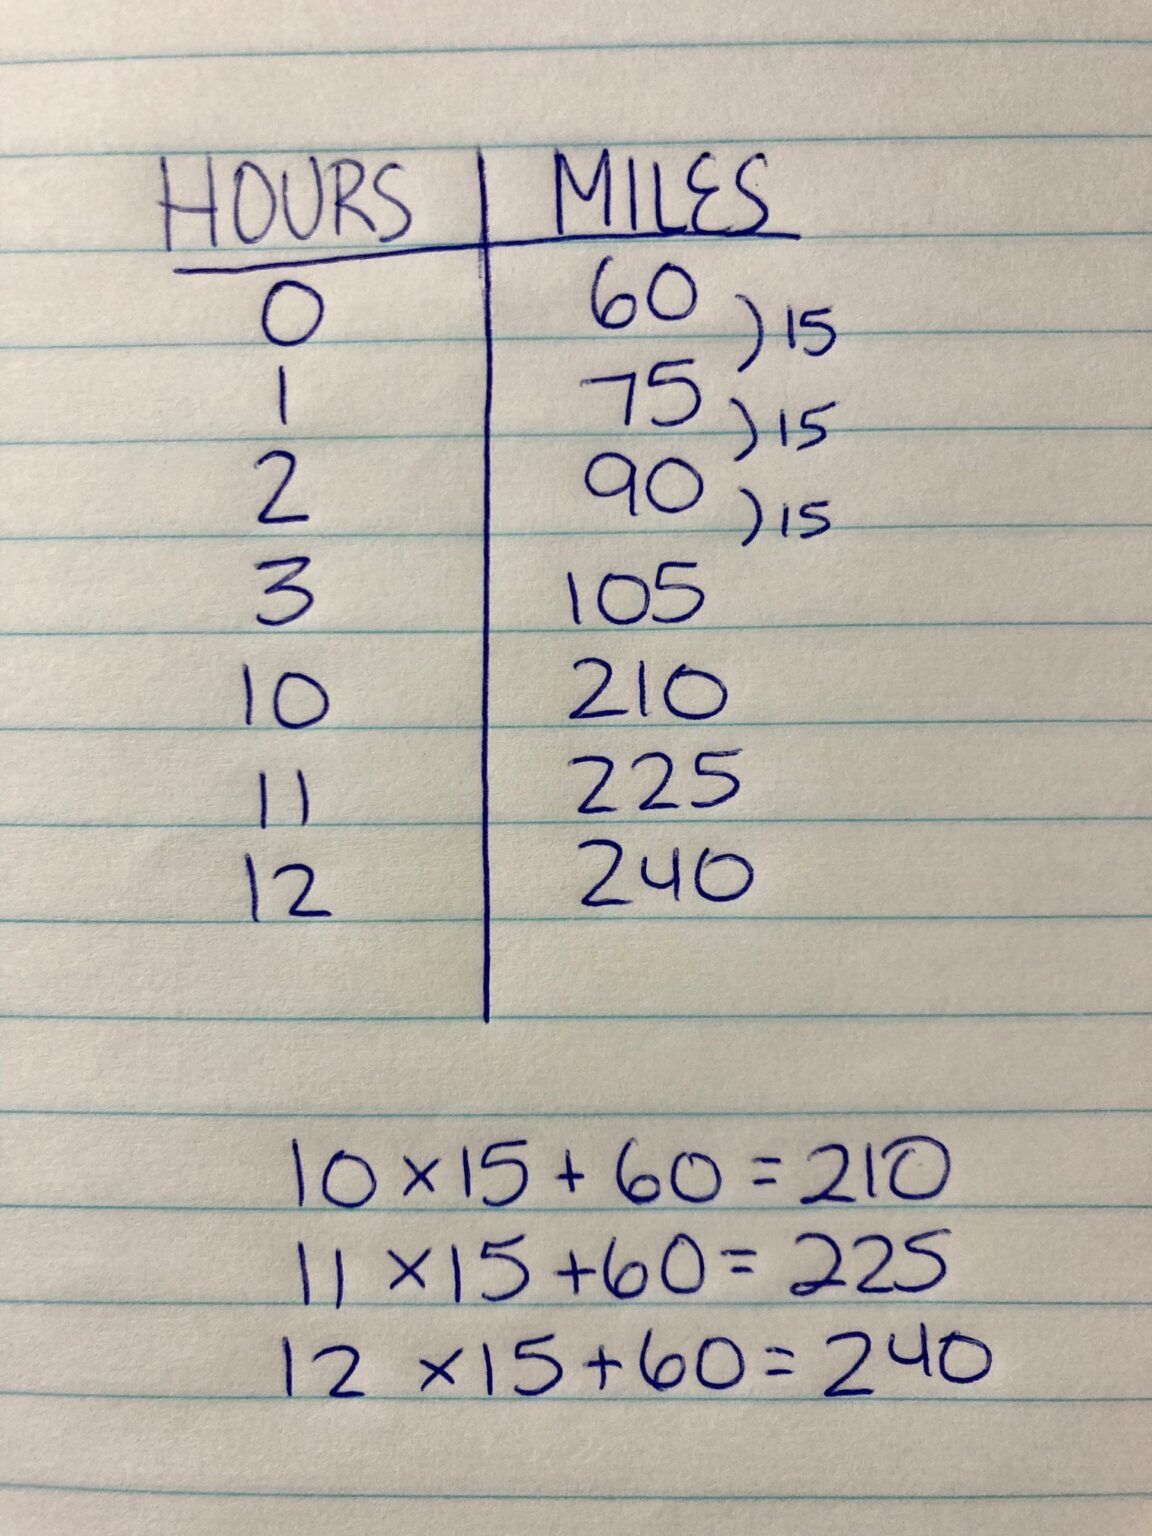 HOURS | MILES
0 60 ) 15
1 75 ) 15
2 90 ) 15
3 105
10 210
11 225
12 240
10 × 15 + 60 = 210
11 × 15 + 60 = 225
12 × 15 + 60 = 240